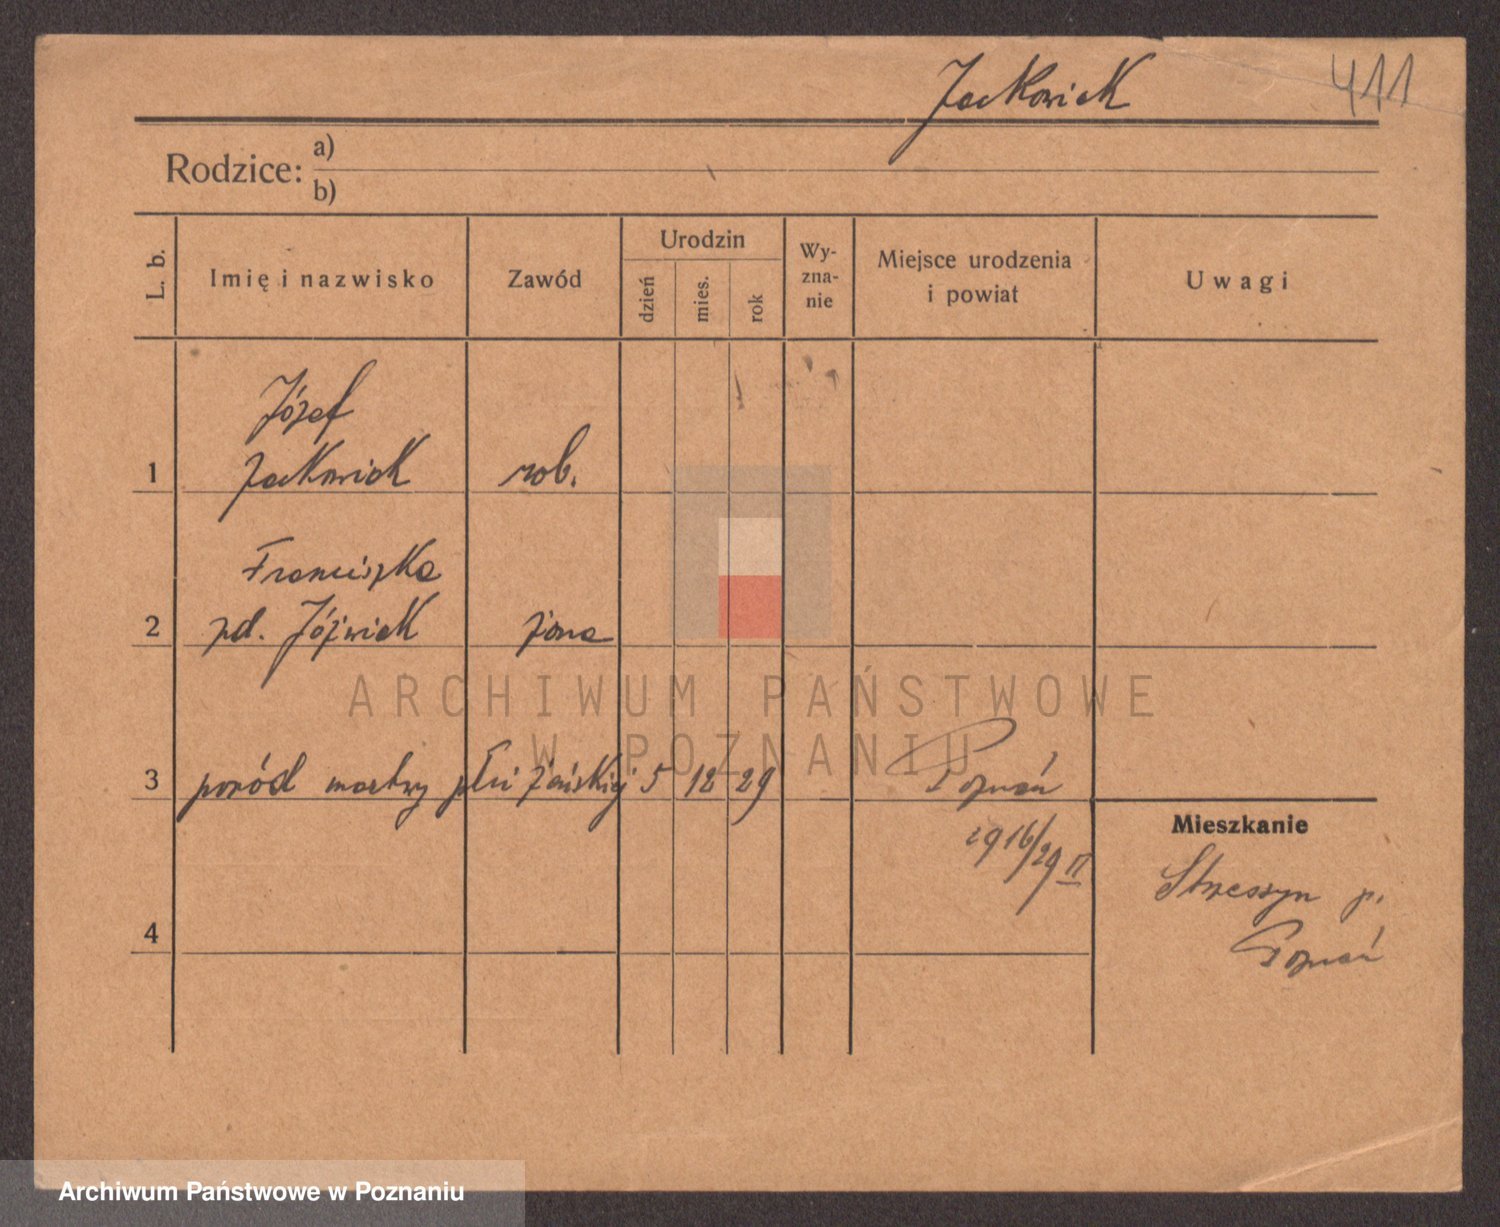 Jackowiak 411
Rodzice: a)
b)
L. b.
Imię i nazwisko
Zawód
Urodzin
dzień
mies.
rok
Wy-
zna-
nie
Miejsce urodzenia
i powiat
Uwagi
Józef
1 Jackowiak rob.
Franciszka
2 zd. Jóźwiak żona
ARCHIWUM PAŃSTWOWE
W POZNANIU
3 poród martwy płci żeńskiej 5 12 29 Poznań
1916/29 II
Mieszkanie
Strzeszyn p.
Poznań
4
Archiwum Państwowe w Poznaniu